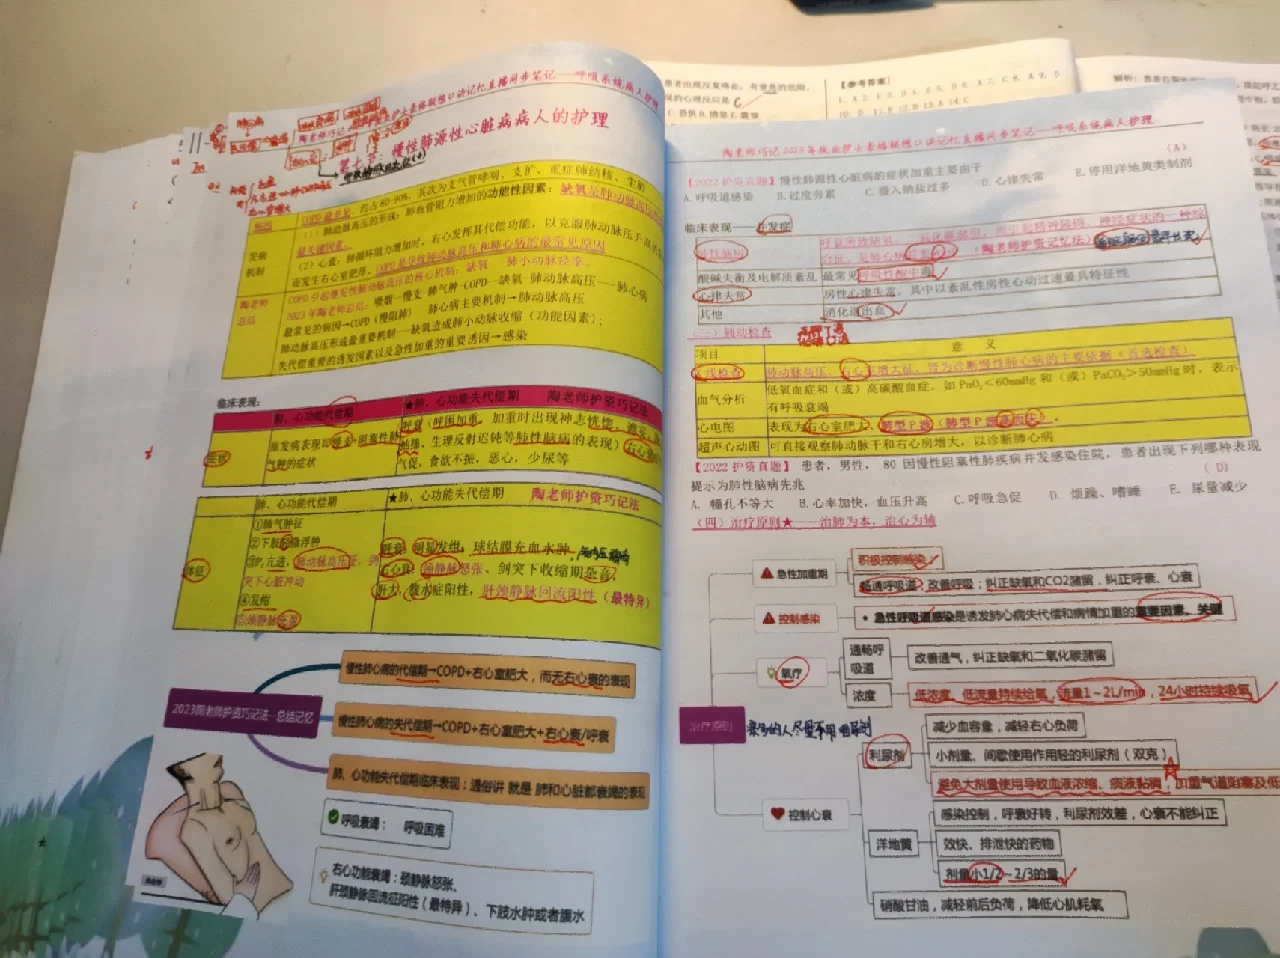 陶老师巧记2023年执业护士表格联想口诀记忆直播同步笔记——呼吸系统病人护理
第七节 慢性肺源性心脏病病人的护理
病因
COPD最常见，约占80-90%，其次为支气管哮喘、支扩、重症肺结核、尘肺
发病机制
（1）肺动脉高压的形成：肺血管阻力增加的功能性因素：缺氧是肺动脉高压形成
最关键因素。
（2）心衰：肺循环阻力增加时，右心发挥其代偿功能，以克服肺动脉压升高的
而发生右心室肥厚。COPD是慢性肺动脉高压和肺心病的最常见原因
陶老师总结
COPD引起继发性肺动脉高压的核心机制：缺氧—肺小动脉痉挛。
2023年陶老师总结：吸烟—慢支—肺气肿—COPD—缺氧—肺动脉高压——肺心病
最常见的病因→COPD（慢阻肺） 肺心病主要机制→肺动脉高压
肺动脉高压形成最重要机制—缺氧造成肺小动脉收缩（功能因素）；
失代偿重要的诱发因素以及急性加重的重要诱因→感染
临床表现：
肺、心功能代偿期
★肺、心功能失代偿期 陶老师护资巧记法
症状
原发病表现即慢支、阻塞性肺气肿的症状
呼衰（呼困加重，加重时出现神志恍惚、谵妄、
抽搐、生理反射迟钝等肺性脑病的表现）右心衰
气促，食欲不振，恶心，少尿等
肺、心功能代偿期
★肺、心功能失代偿期 陶老师护资巧记法
体征
①肺气肿征
②下肢轻微浮肿
③P₂亢进，肺动脉高压征，剑
突下心脏冲动
④发绀
⑤颈静脉充盈
呼衰：明显发绀，球结膜充血水肿，
右心衰：颈静脉怒张、剑突下收缩期杂音，
肝大，腹水症阳性，肝颈静脉回流阳性（最特异）
2023陶老师护资巧记法-总结记忆
慢性肺心病的代偿期→COPD+右心室肥大，而无右心衰的表现
慢性肺心病的失代偿期→COPD+右心室肥大+右心衰/呼衰
肺、心功能失代偿期临床表现：通俗讲 就是 肺和心脏都衰竭的表现
呼吸衰竭： 呼吸困难
右心功能衰竭：颈静脉怒张、
肝颈静脉回流征阳性（最特异）、下肢水肿或者腹水
【参考答案】
陶老师巧记2023年执业护士表格联想口诀记忆直播同步笔记——呼吸系统病人护理
【2022护资真题】慢性肺源性心脏病的症状加重主要由于 （A）
A.呼吸道感染 B.过度劳累 C.摄入钠盐过多 D.心律失常 E.停用洋地黄类制剂
临床表现——并发症
肺性脑病
陶老师护资记忆法
酸碱失衡及电解质紊乱 最常见呼吸性酸中毒
心律失常 房性心律失常，其中以紊乱性房性心动过速最具特征性
其他 消化道出血
（三）辅助检查
项目 意义
X线检查 肺动脉高压、右心室增大征，皆为诊断慢性肺心病的主要依据（首选检查）
血气分析 低氧血症和（或）高碳酸血症，如PaO₂＜60mmHg 和（或）PaCO₂＞50mmHg时，表示
有呼吸衰竭
心电图 表现为右心室肥大，肺型P波（肺型P波高而尖）。
超声心动图 可直接观察肺动脉干和右心房增大，以诊断肺心病
【2022护资真题】 患者，男性， 80 因慢性阻塞性肺疾病并发感染住院，患者出现下列哪种表现
提示为肺性脑病先兆 （D）
A. 瞳孔不等大 B.心率加快，血压升高 C.呼吸急促 D. 烦躁、嗜睡 E. 尿量减少
（四）治疗原则★——治肺为本，治心为辅
治疗原则
急性加重期
积极控制感染
畅通呼吸道；改善呼吸；纠正缺氧和CO2潴留，纠正呼衰、心衰
控制感染
• 急性呼吸道感染是诱发肺心病失代偿和病情加重的重要因素。关键
氧疗
通畅呼吸道
改善通气，纠正缺氧和二氧化碳潴留
浓度
低浓度、低流量持续给氧，流量1~2L/min，24小时持续吸氧
控制心衰
利尿剂
减少血容量，减轻右心负荷
小剂量、间歇使用作用轻的利尿剂（双克）
避免大剂量使用导致血液浓缩、痰液黏稠，加重气道阻塞及低
洋地黄
感染控制，呼衰好转，利尿剂效差，心衰不能纠正
效快、排泄快的药物
剂量小1/2~2/3的量
硝酸甘油，减轻前后负荷，降低心肌耗氧